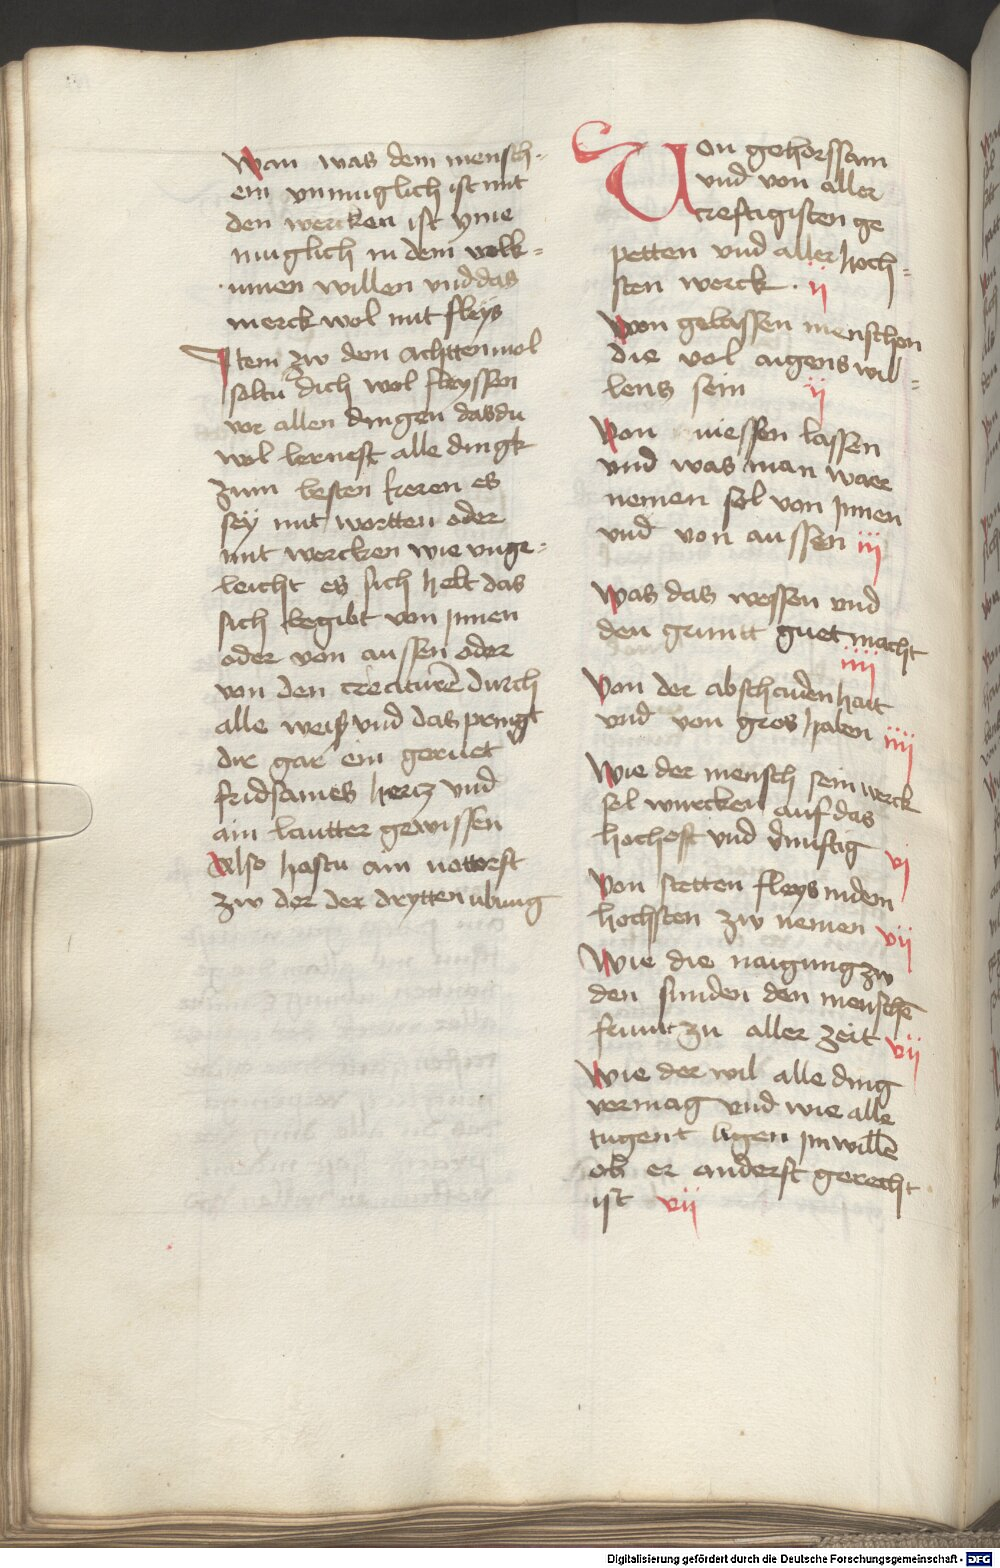 Wan was dem mensch-
em vnmuglich ist mit
den wercken ist yme
muglich in dem volk-
umen willen vnd das
merck wol mit fleys
Item zw dem achtten mol
soltu dich wol fleyssen
vor allen dingen das du
wol lernest alle dingk
zum besten keren es
sey mit wortten oder
mit wercken wie vnge-
leicht es sich helt das
sich begibt von jnnen
oder von aussen oder
von den creaturē durch
alle weiß vnd das pringt
dir gar ein geruet
fridsames hertz vnd
ain lautter gewissen
Also hastu ain nottorft
zw der der drytten ubung
Von gehorssam
vnd von aller
creftigisten ge
petten vnd aller hoch-
sten werck . ij
Von gelassen menschen
die vol aigens wil-
lens sein ij
Von niessen lassen
vnd was man waer
nemen sol von jnnen
vnd von aussen iij
Was das wessen vnd
den gruntt guet macht
iiij
Von der abschaidenhait
vnd von gros haben iiij
Wie der mensch sein werck
sol wurcken auf das
hochest vnd vnuftig vj
Von stetten fleys in dem
hochsten zw nemen vij
Wie die naigung zw
den sunden den menschē
frumt zu aller zeit vij
Wie der wil alle ding
vermag vnd wie alle
tugent ligen jm willē
ob er anderst gerecht
ist vij
Digitalisierung gefördert durch die Deutsche Forschungsgemeinschaft - DFG